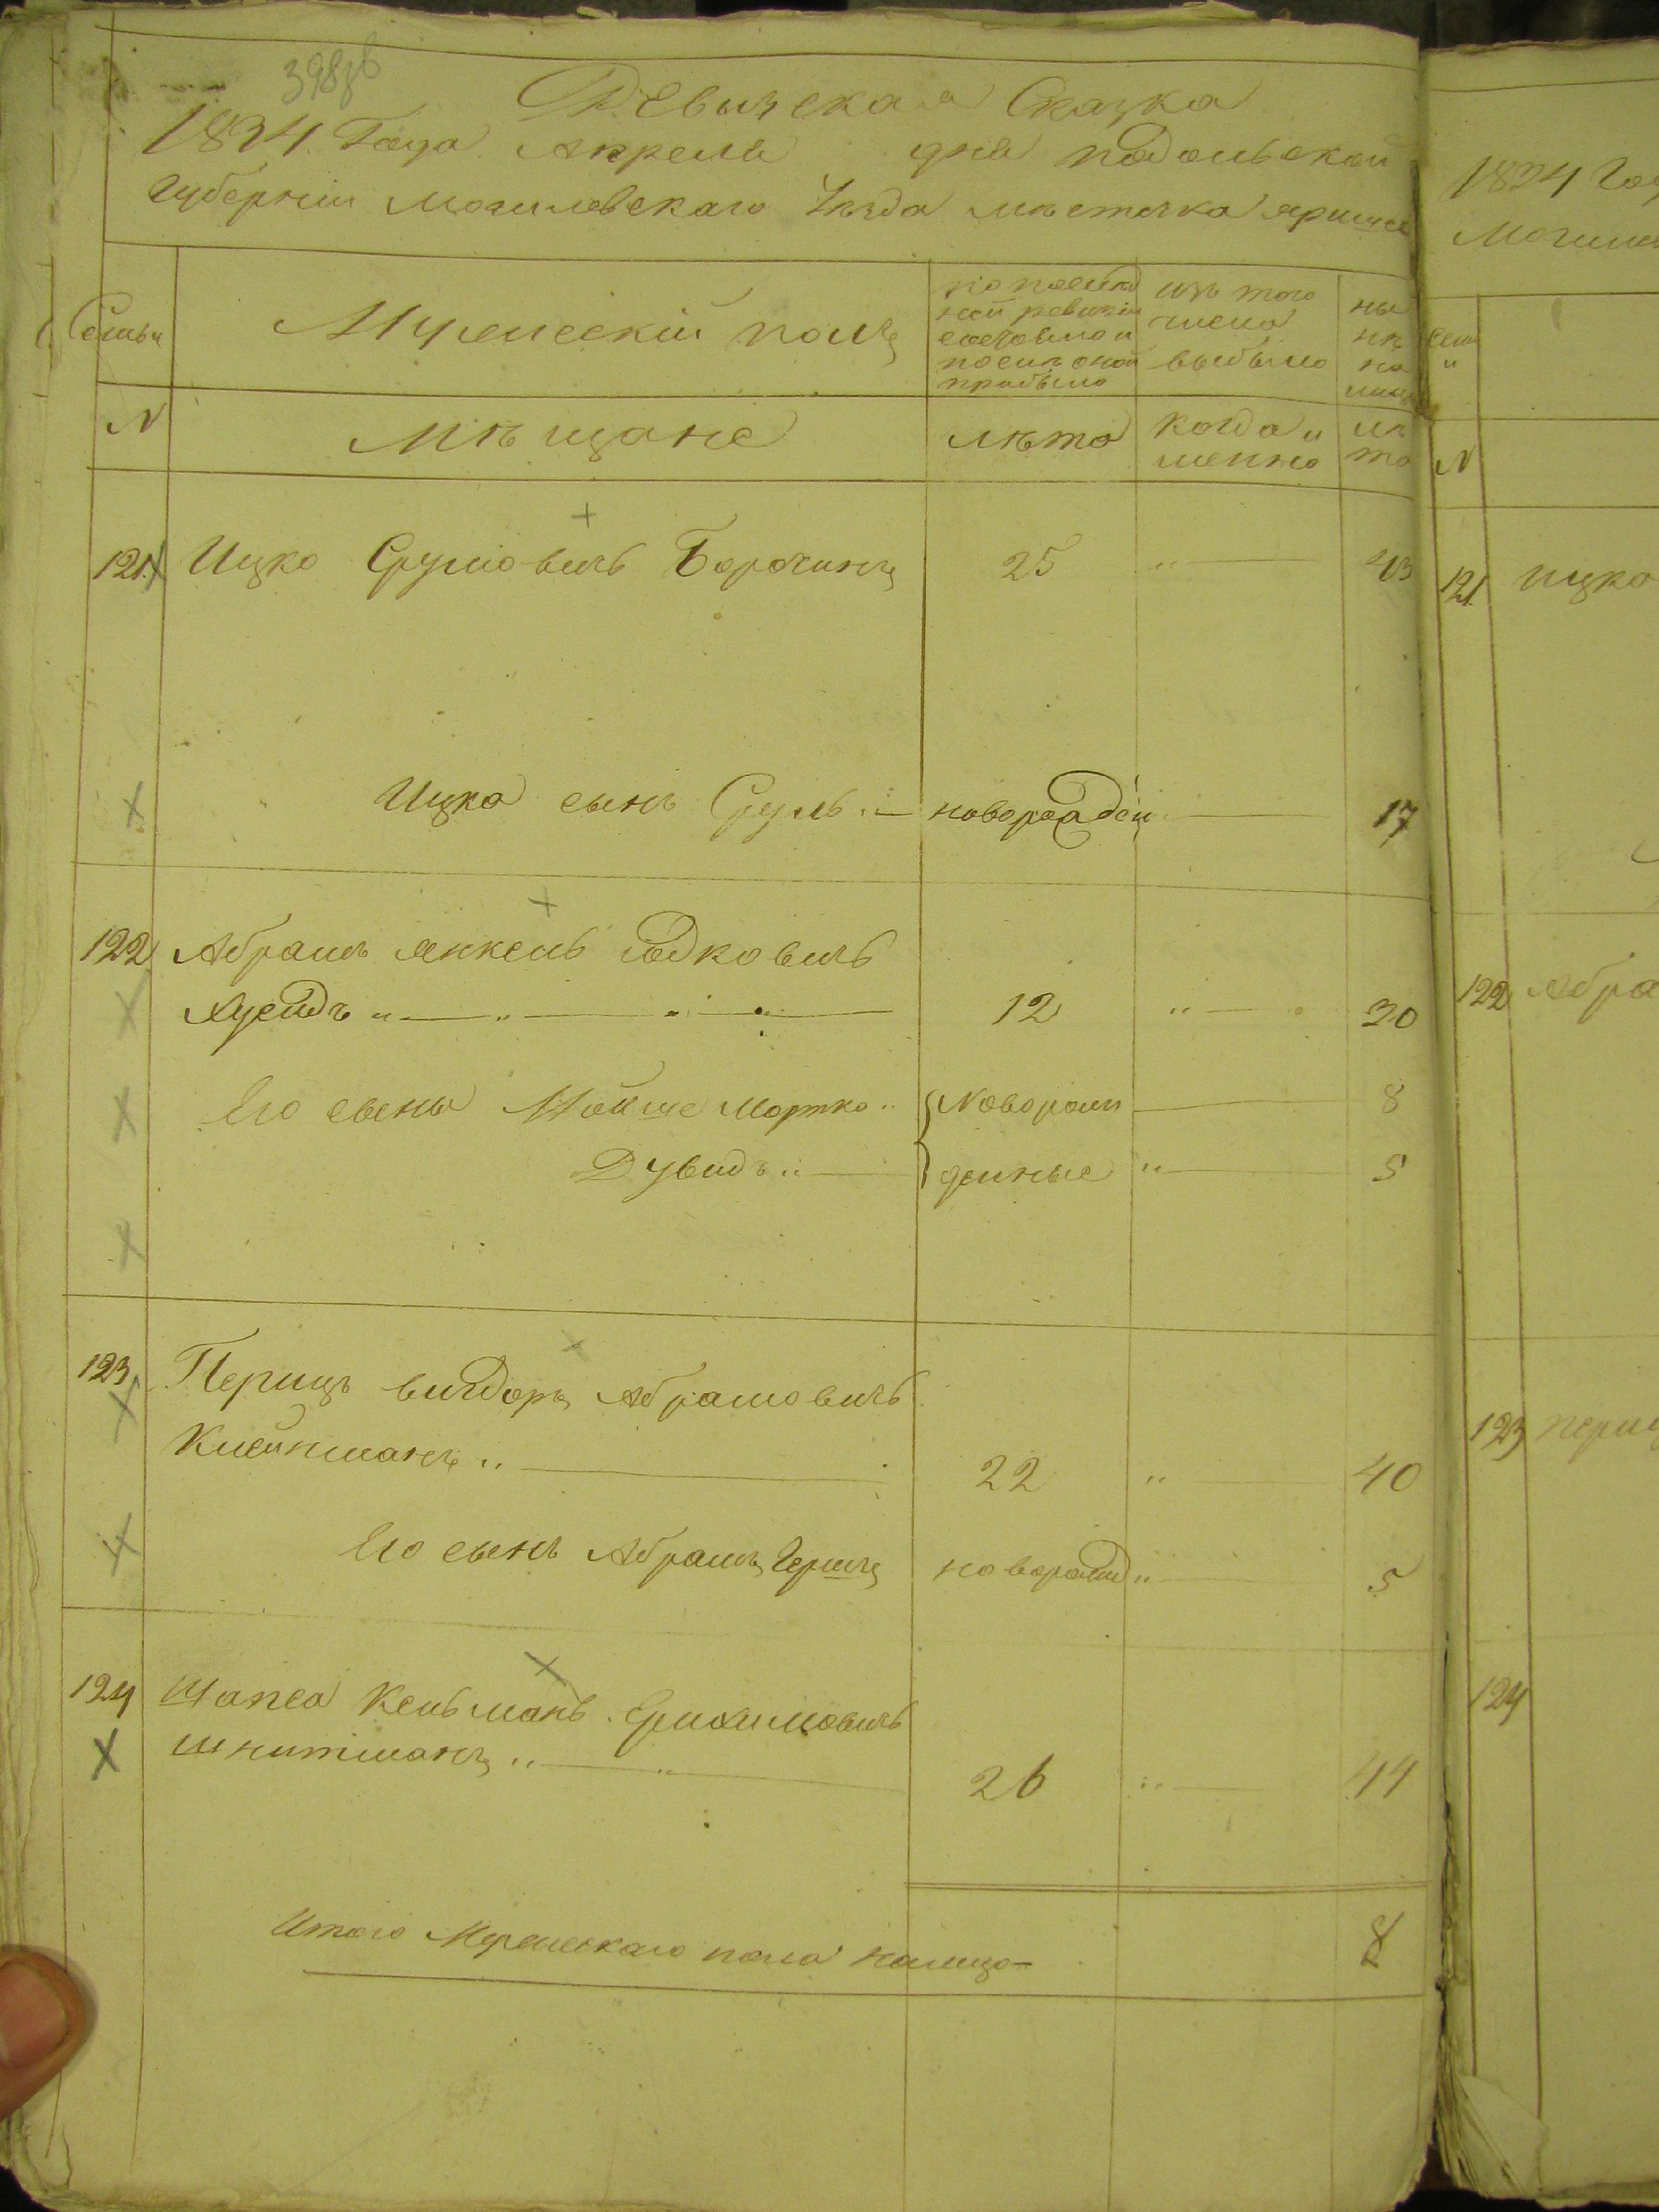 Ревизская Сказка
1834 Года Апреля дня Подольской
Губернiи Могилевскаго Уѣзда мѣстечка Яришев
Семьи
Мужескiй полъ
по послѣд
ней ревизiи
состояло и
послѣ оной
прибыло
изъ того
числа
выбыло
ны
нѣ
на
лицо
N
Мѣщане
лѣта
когда и
менно
лѣ
та
121 Ицко Сруловичь Борочинъ 25 " 43
Ицка сынъ Сруль новорожден 17
122 Абрамъ Янкель Иодковичь
Хусидъ " " 12 " 30
Его сыны Мойше Мортко " новорож 8
Дувидъ " денные " 5
123 Перицъ Вигдоръ Абрамовичь
Клейнманъ " 22 " 40
Его сынъ Абрамъ Гершъ новорожд " 5
124 Шапса Кельманъ Срихимовичь
Шнитманъ " " 26 " 44
Итого Мужескаго пола налицо 8
1834 Го
Могилев
Семьи
N
121 Ицко
122 Абра
123 Периц
124